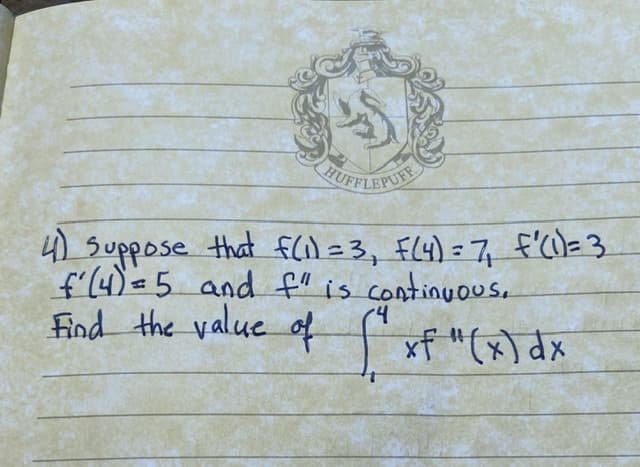 HUFFLEPUFF
4) Suppose that f(1) = 3, f(4) = 7, f'(1) = 3
f'(4) = 5 and f" is continuous.
Find the value of ∫₁⁴ xf"(x) dx